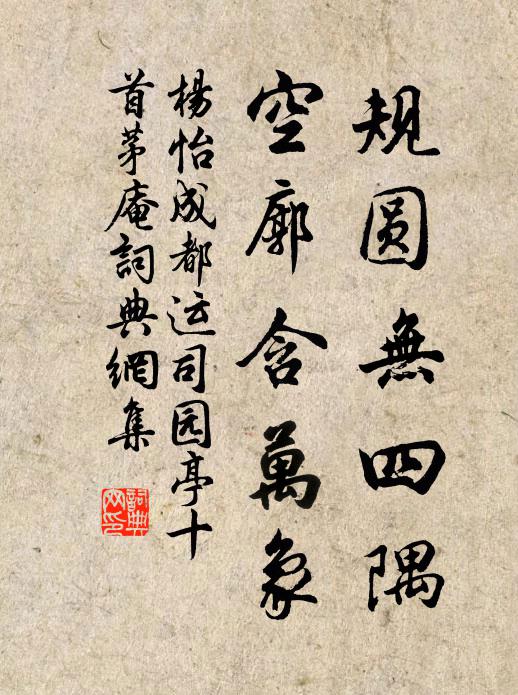 規圆無四隅
空廓含萬象
楊怡成都运司园亭十
首茅庵詞典網集
詞典
网印